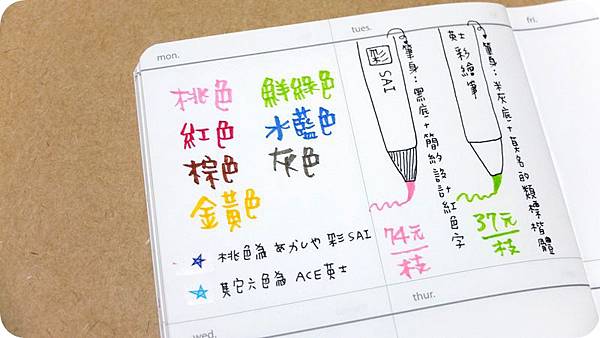 mon.
桃色
鮮綠色
紅色
水藍色
棕色
灰色
金黃色
桃色為 あかしや 彩SAI
其它六色為 ACE英士
tues.
彩 SAI
筆身：黑底+簡約設計紅色字
74元/枝
英士 彩繪筆
筆身：半灰底+莫名的類標楷體
37元/枝
fri.
wed.
thur.